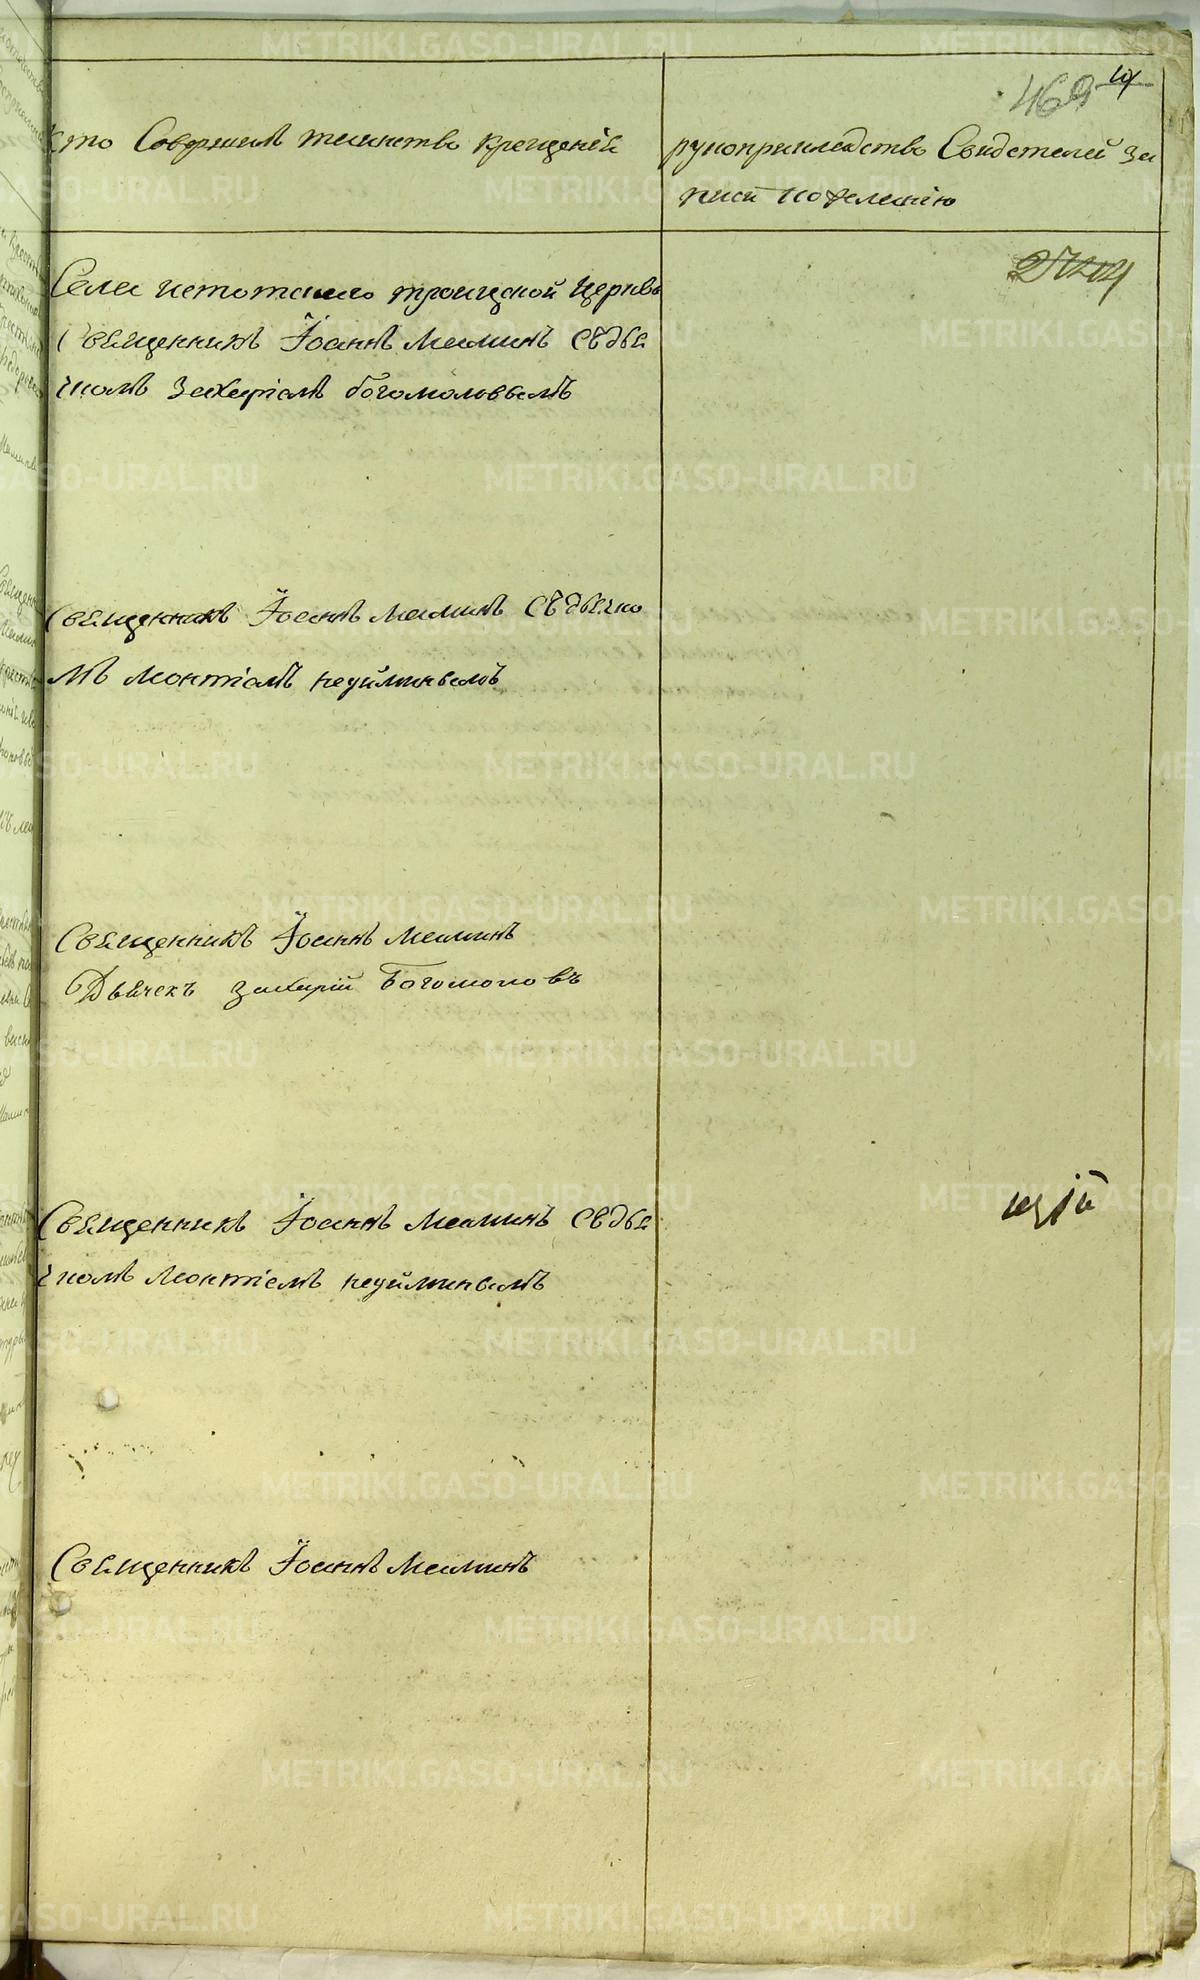 469
Кто Совершилъ таинство крещенія
рукоприкладство Свидетелей за
писи по желанію
Села истотскаго троицкой Церкви
Священникъ Іоаннъ Маминъ Съдья
чкомъ Захаріамъ богомоловымъ
Священникъ Іоаннъ Маминъ Съдьячко
мъ Леонтіамъ неуйминвамъ
Священникъ Іоаннъ Маминъ
Дьячекъ Захарій Богомоловъ
Священникъ Іоаннъ Маминъ Съдья
чкомъ Леонтіемъ неуйминвамъ
Священникъ Іоаннъ Маминъ
METRIKI.GASO-URAL.RU